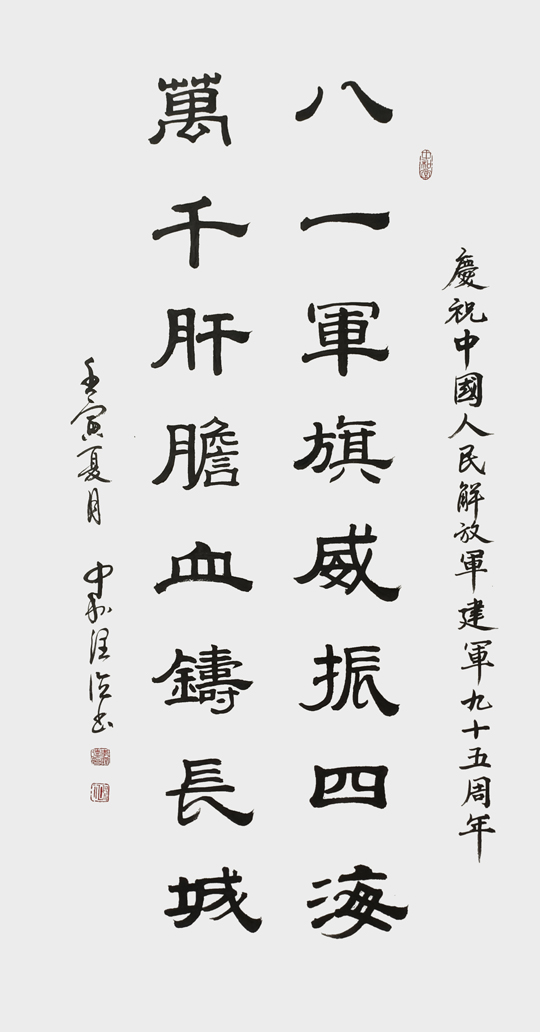 慶祝中國人民解放軍建軍九十五周年
八一軍旗威振四海
萬千肝膽血鑄長城
壬寅夏月